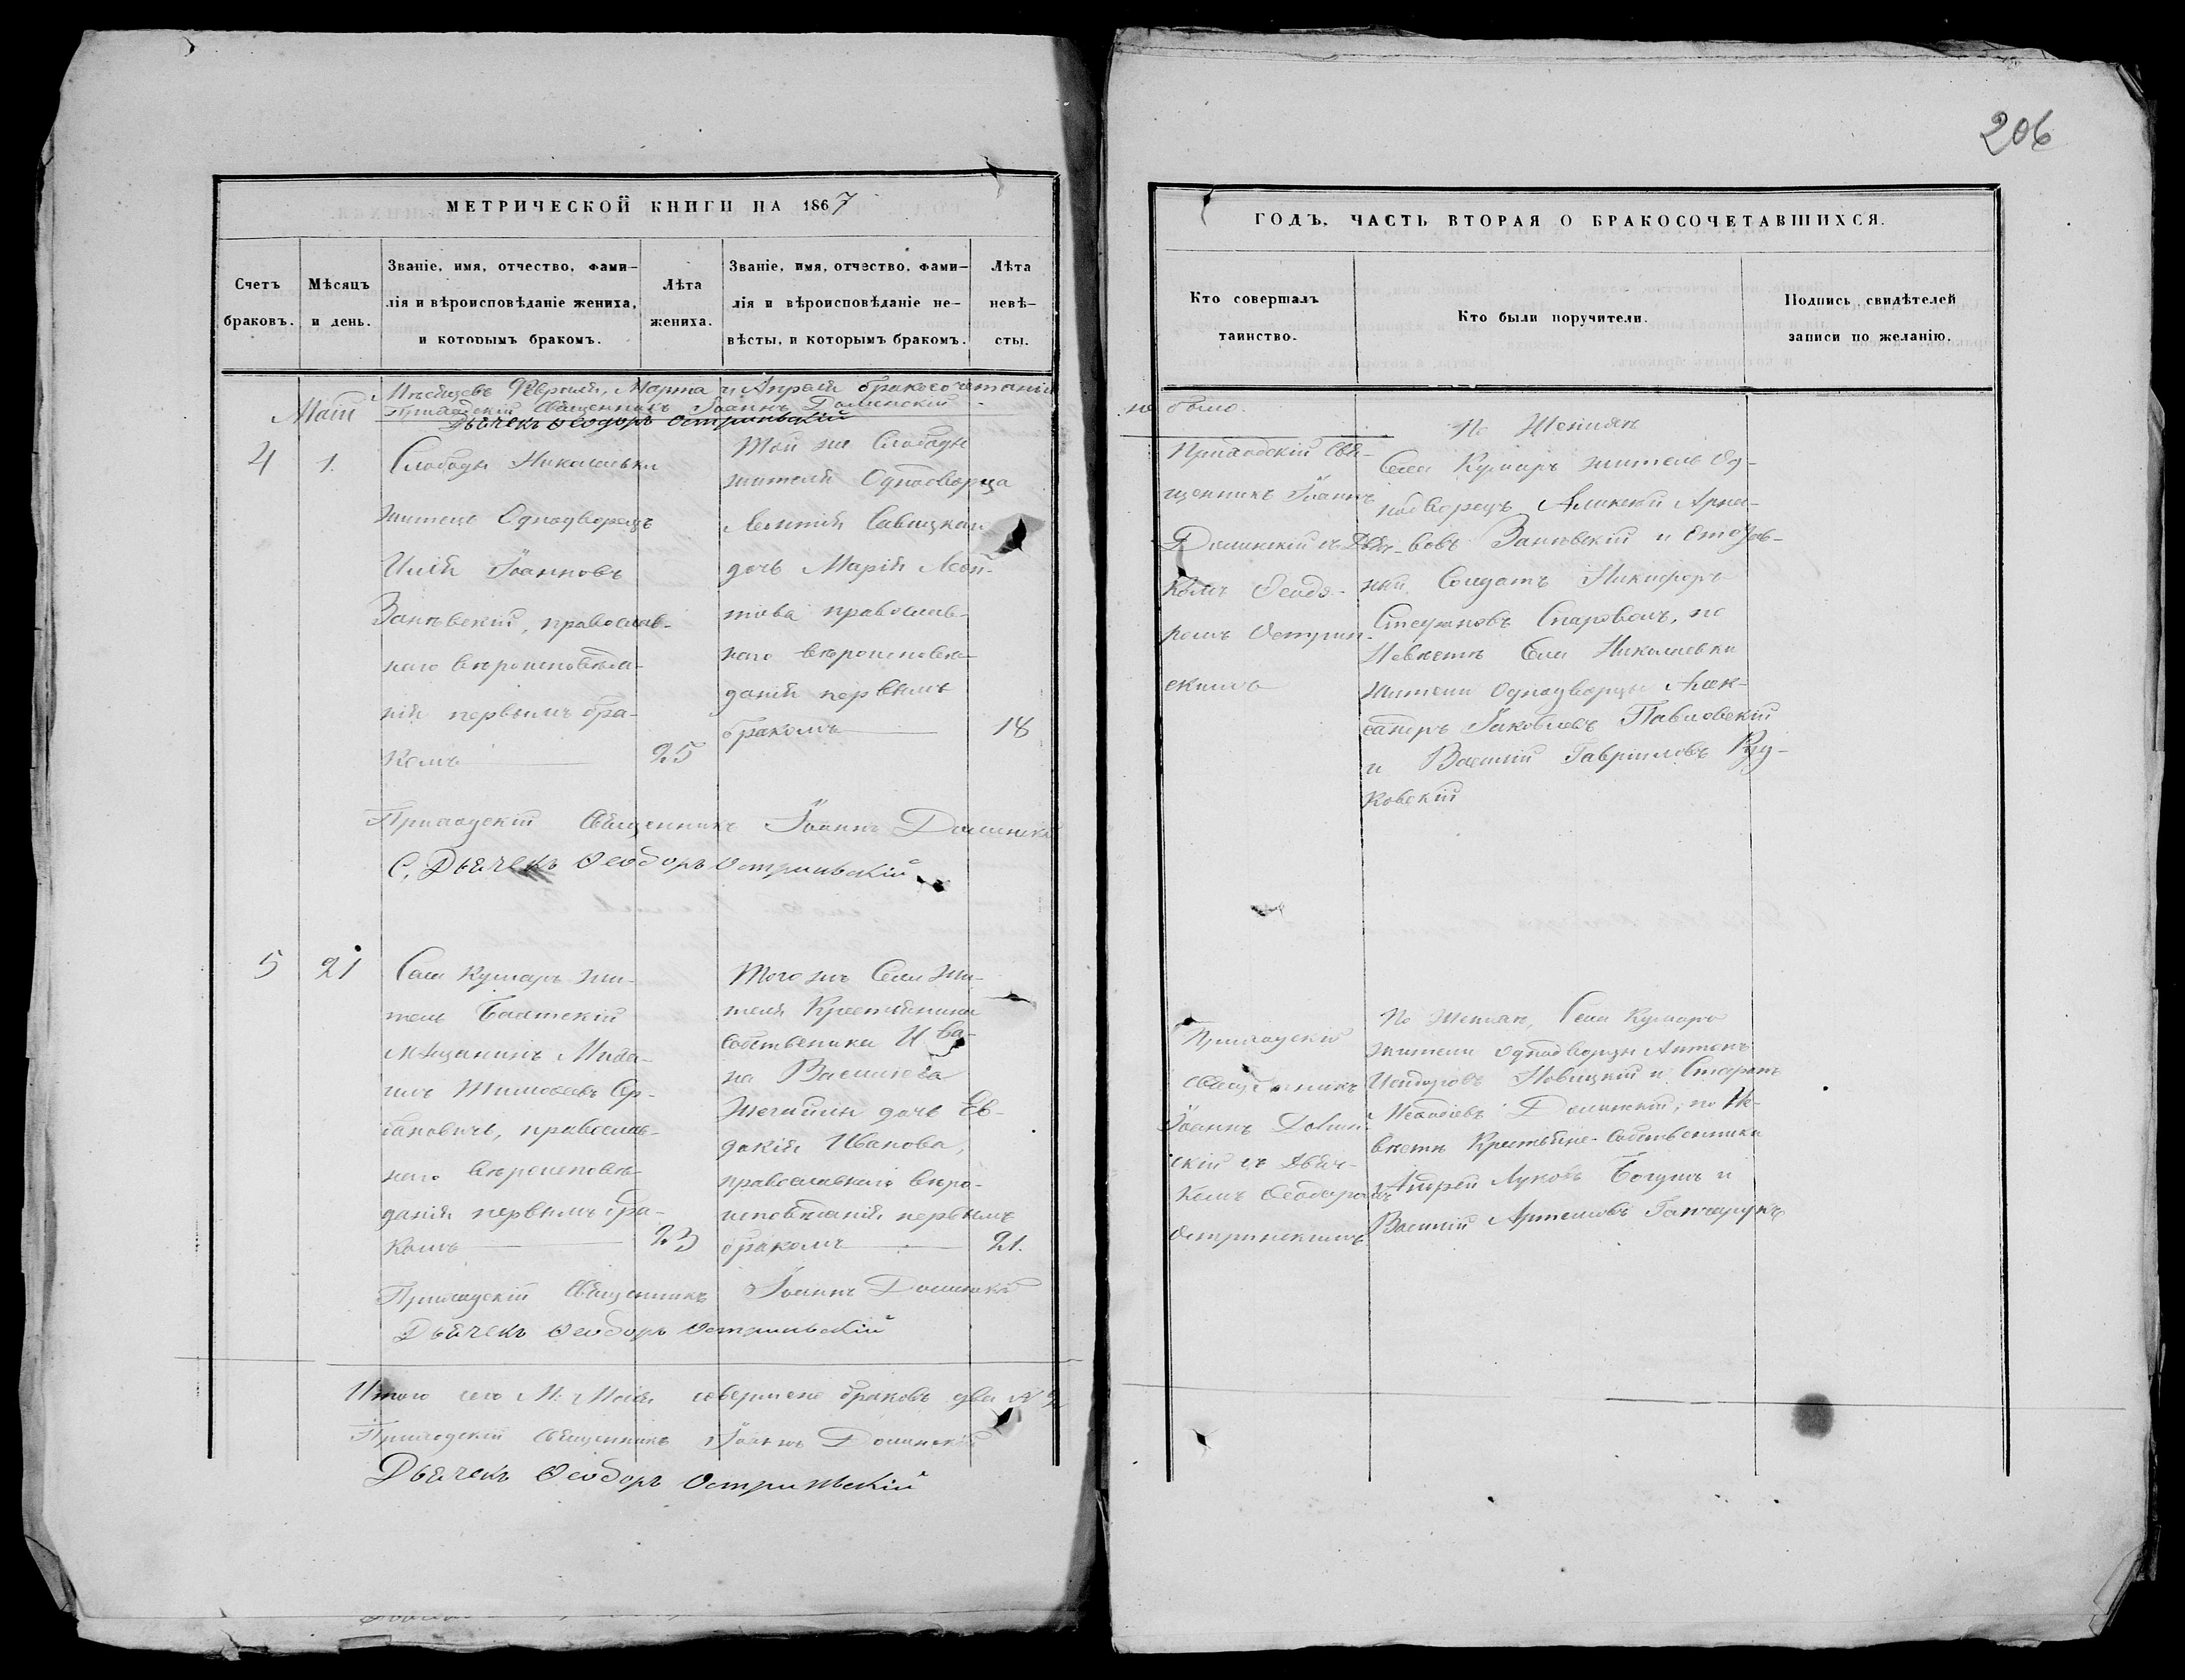 206
МЕТРИЧЕСКОЙ КНИГИ НА 1867
ГОДЪ. ЧАСТЬ ВТОРАЯ О БРАКОСОЧЕТАВШИХСЯ.
Счетъ
браковъ.
Мѣсяцъ
и день.
Званіе, имя, отчество, фами-
лія и вѣроисповѣданіе жениха,
и которымъ бракомъ.
Лѣта
жениха.
Званіе, имя, отчество, фами-
лія и вѣроисповѣданіе не-
вѣсты, и которымъ бракомъ.
Лѣта
невѣ-
сты.
Кто совершалъ
таинство.
Кто были поручители.
Подпись свидѣтелей
записи по желанію.
Мѣсяцевъ Февраля, Марта и Апреля бракосочетанія
не было.
Приходскій Священникъ Іоаннъ Долинскій
Дьячекъ Ѳеодоръ Остриньскій
Май
4
1.
Слободы Николаевки
житель Однодворецъ
Илія Іоанновъ
православ-
наго вѣроисповѣда-
нія первымъ бра-
комъ
25
Той же Слободы
жителя Однодворца
Савицкаго
дочь Марія Леон-
това православ-
наго вѣроисповѣ-
данія первымъ
бракомъ
18
Приходскій Свя-
щенникъ Іоаннъ
Долинскій съ Дья-
комъ Ѳеодо-
ромъ Острин-
скимъ
По Женихѣ
Села Кумаръ житель Од-
нодворецъ Алексѣй
Солдатъ Никифоръ
Стефановъ по
Невѣстѣ Села Николаевки
жители Однодворцы Алек-
сандръ Яковлевъ Павловскій
и Василій Гавріиловъ Ру-
ковскій
Приходскій Священникъ Іоаннъ Долинскій
С. Дьячекъ Ѳеодоръ Остриньскій
5
21
Села Кумаръ жи-
тель Балтскій
мѣщанинъ Миха-
илъ Тимоѳеевъ
православ-
наго вѣроисповѣ-
данія первымъ бра-
комъ
23
Того же Села жи-
теля Крестьянина
Собственика Ива-
на Василіева
дочь Ев-
докія Иванова,
православнаго вѣро-
исповѣданія первымъ
бракомъ
21.
Приходскій
священникъ
Іоаннъ Долин-
скій съ Дьяч-
комъ Ѳеодоромъ
Остринскимъ
По Женихѣ, Села Кумаръ
жители однодворцы Антонъ
Новицкій и
Долинскій, по Не-
вѣстѣ Крестьяне-Собственники
Андрей Луковъ и
Василій Артемовъ Ганчарукъ
Приходскій Священникъ Іоаннъ Долинскій
Дьячекъ Ѳеодоръ Остриньскій
Итого сего М. Маія совершено браковъ два № 2
Приходскій Священникъ Іоаннъ Долинскій
Дьячекъ Ѳеодоръ Остриньскій